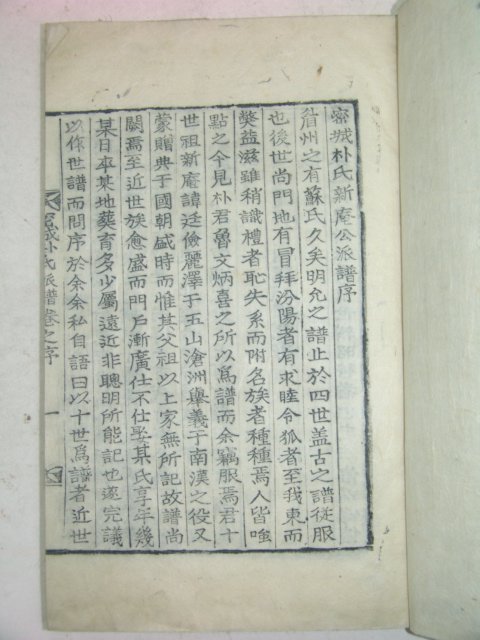 密城朴氏新庵公派譜序
眉州之有蘇氏久矣明允之譜止於四世盖古之譜從服
也後世尚門地有冒拜汾陽者有求睦令狐者至我東而
獘益滋雖稍識禮者恥失系而附名族者種種焉人皆嗤
點之今見朴君魯文炳喜之所以爲譜而余竊服焉君十
世祖新庵諱廷儉麗澤于五山滄洲擧義于南漢之役又
蒙贈典于國朝盛時而惟其父祖以上家無所記故譜尚
闕焉至近世族愈盛而門戶漸廣仕不仕娶某氏享年幾
某日卒某地葬育多少屬遠近非聰明所能記也遂完議
以作世譜而問序於余余私自語曰以十世爲譜者近世
密城朴氏派譜卷之序
一